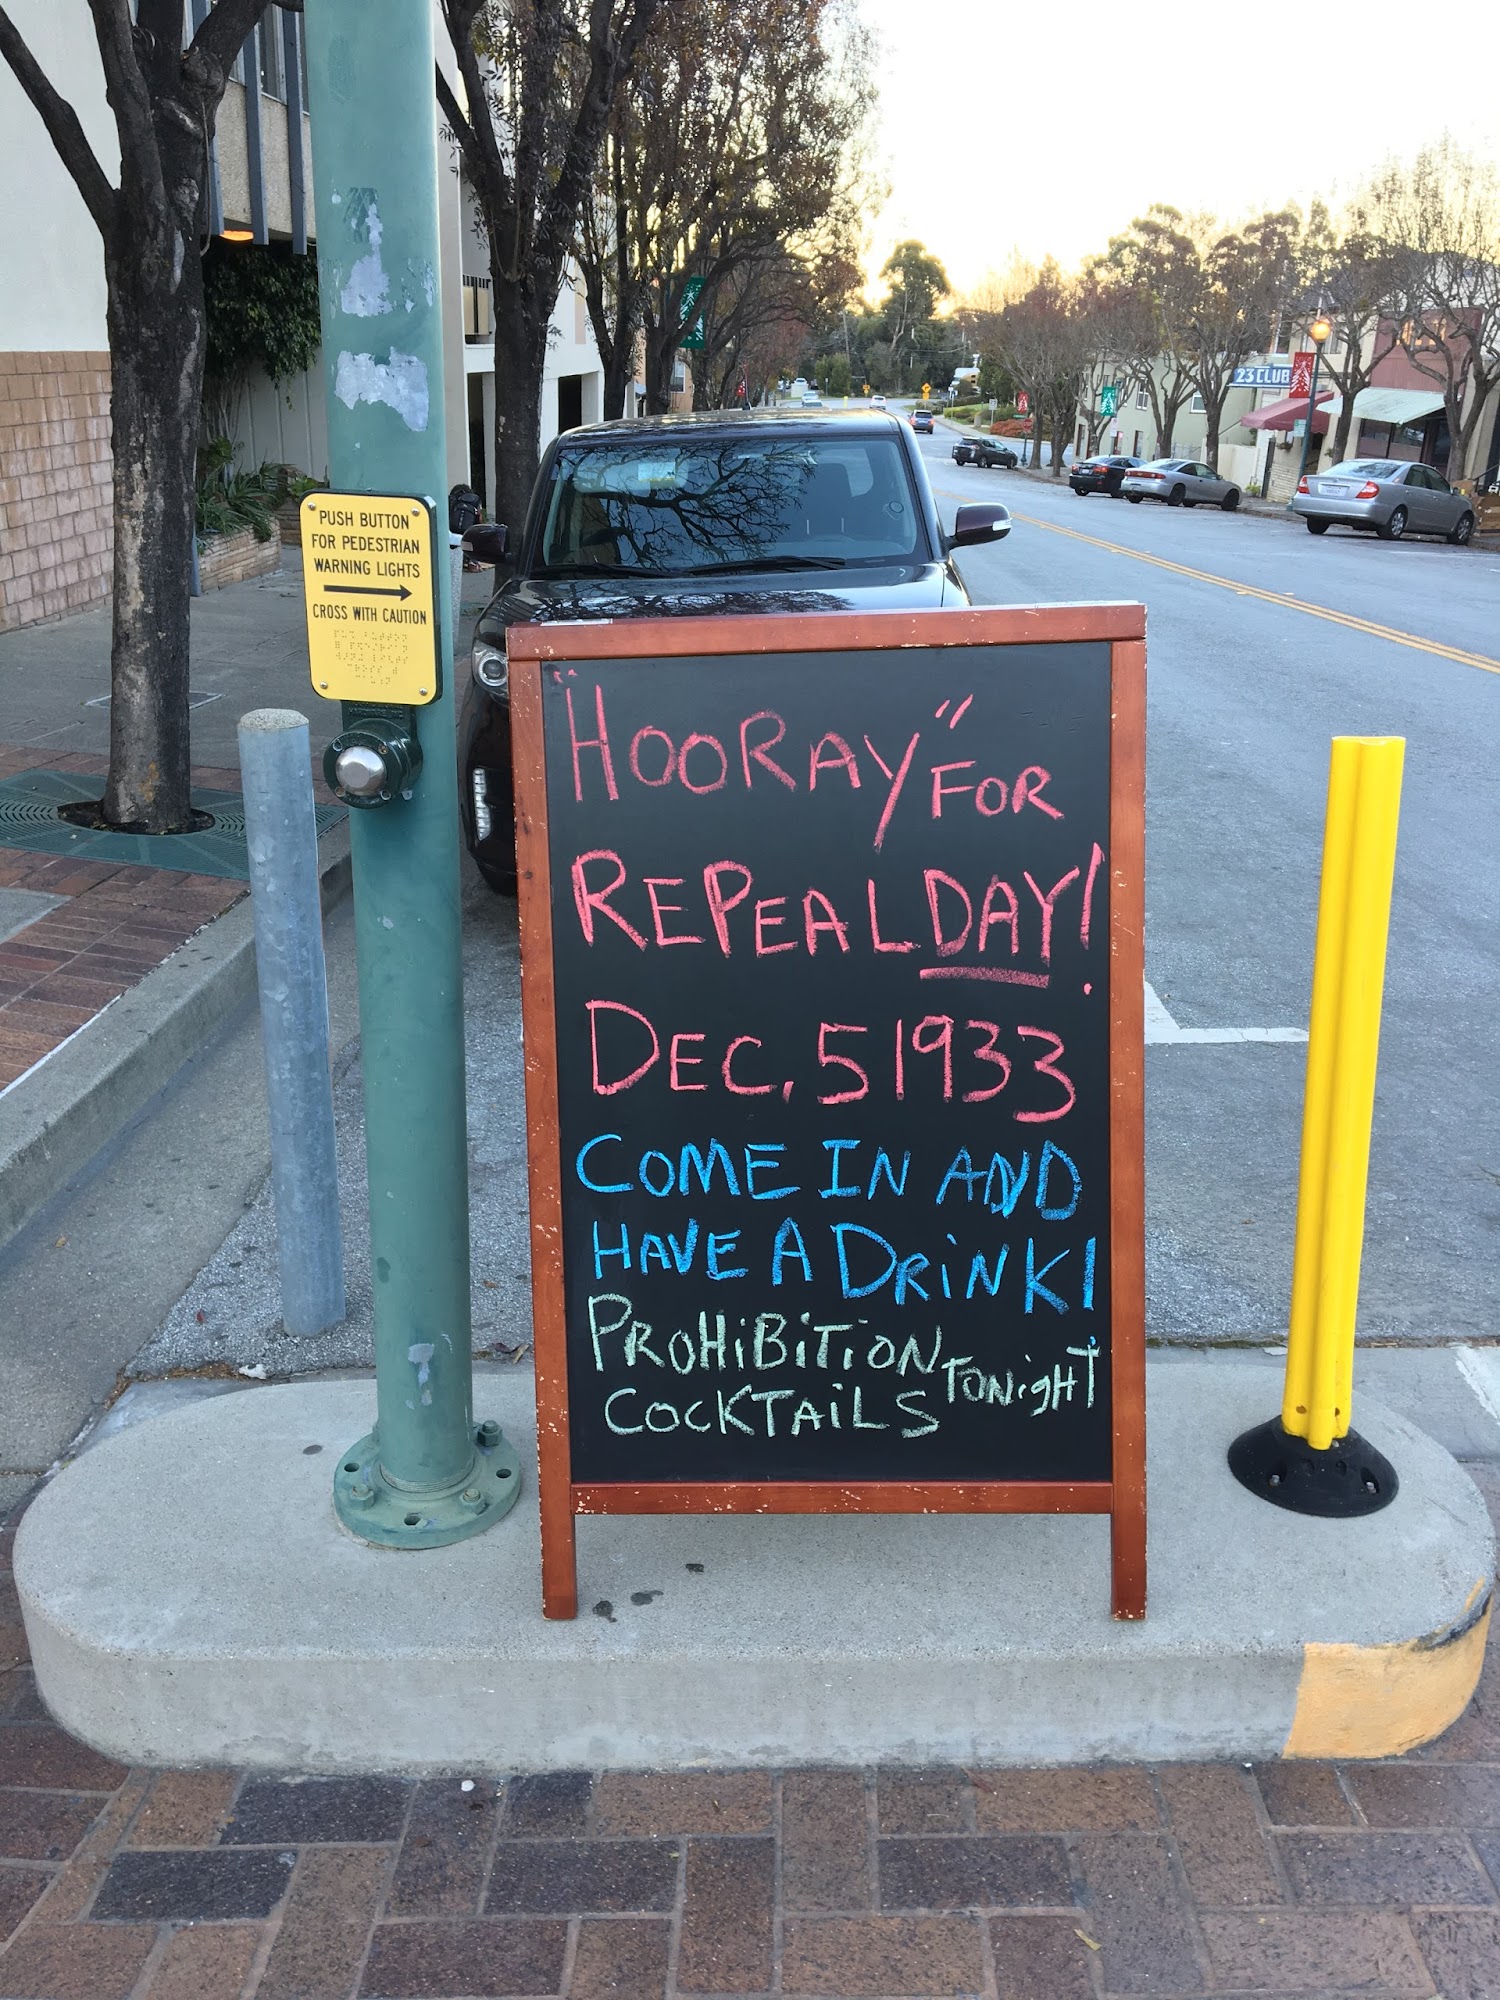 PUSH BUTTON
FOR PEDESTRIAN
WARNING LIGHTS
CROSS WITH CAUTION
23 CLUB
"HOORAY" FOR
REPEAL DAY!
DEC. 5 1933
COME IN AND
HAVE A DRINK!
PROHIBITION
COCKTAILS TONIGHT